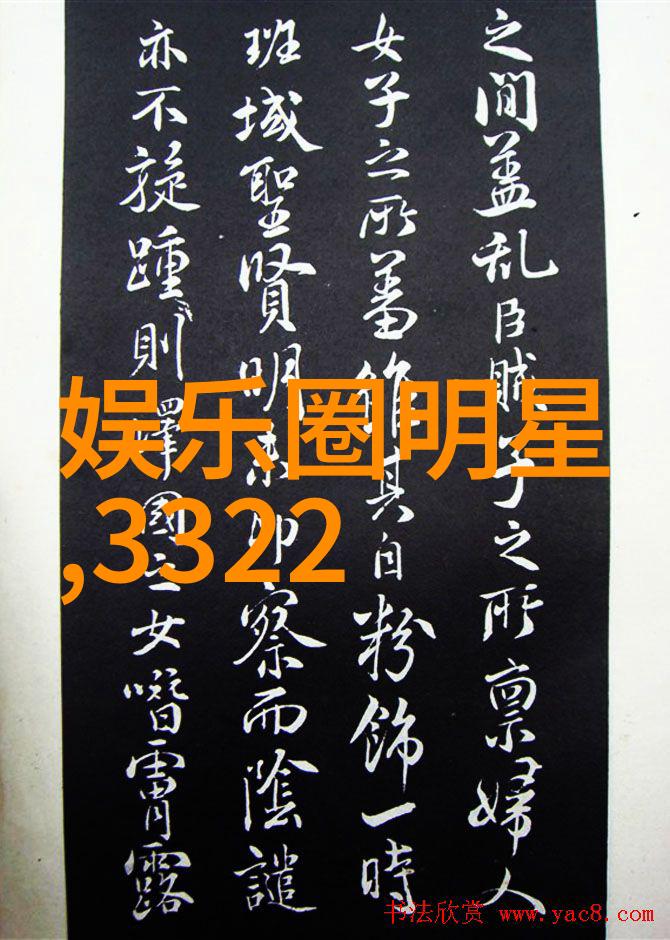 之間蓋乱臣賊子之所禀婦人
女子之所蓄其自粉飾一時
班域聖賢明未即察而陰譴
亦不旋踵則國之女霄露
娱乐圈明星
,3322
书法欣赏 www.yac8.com